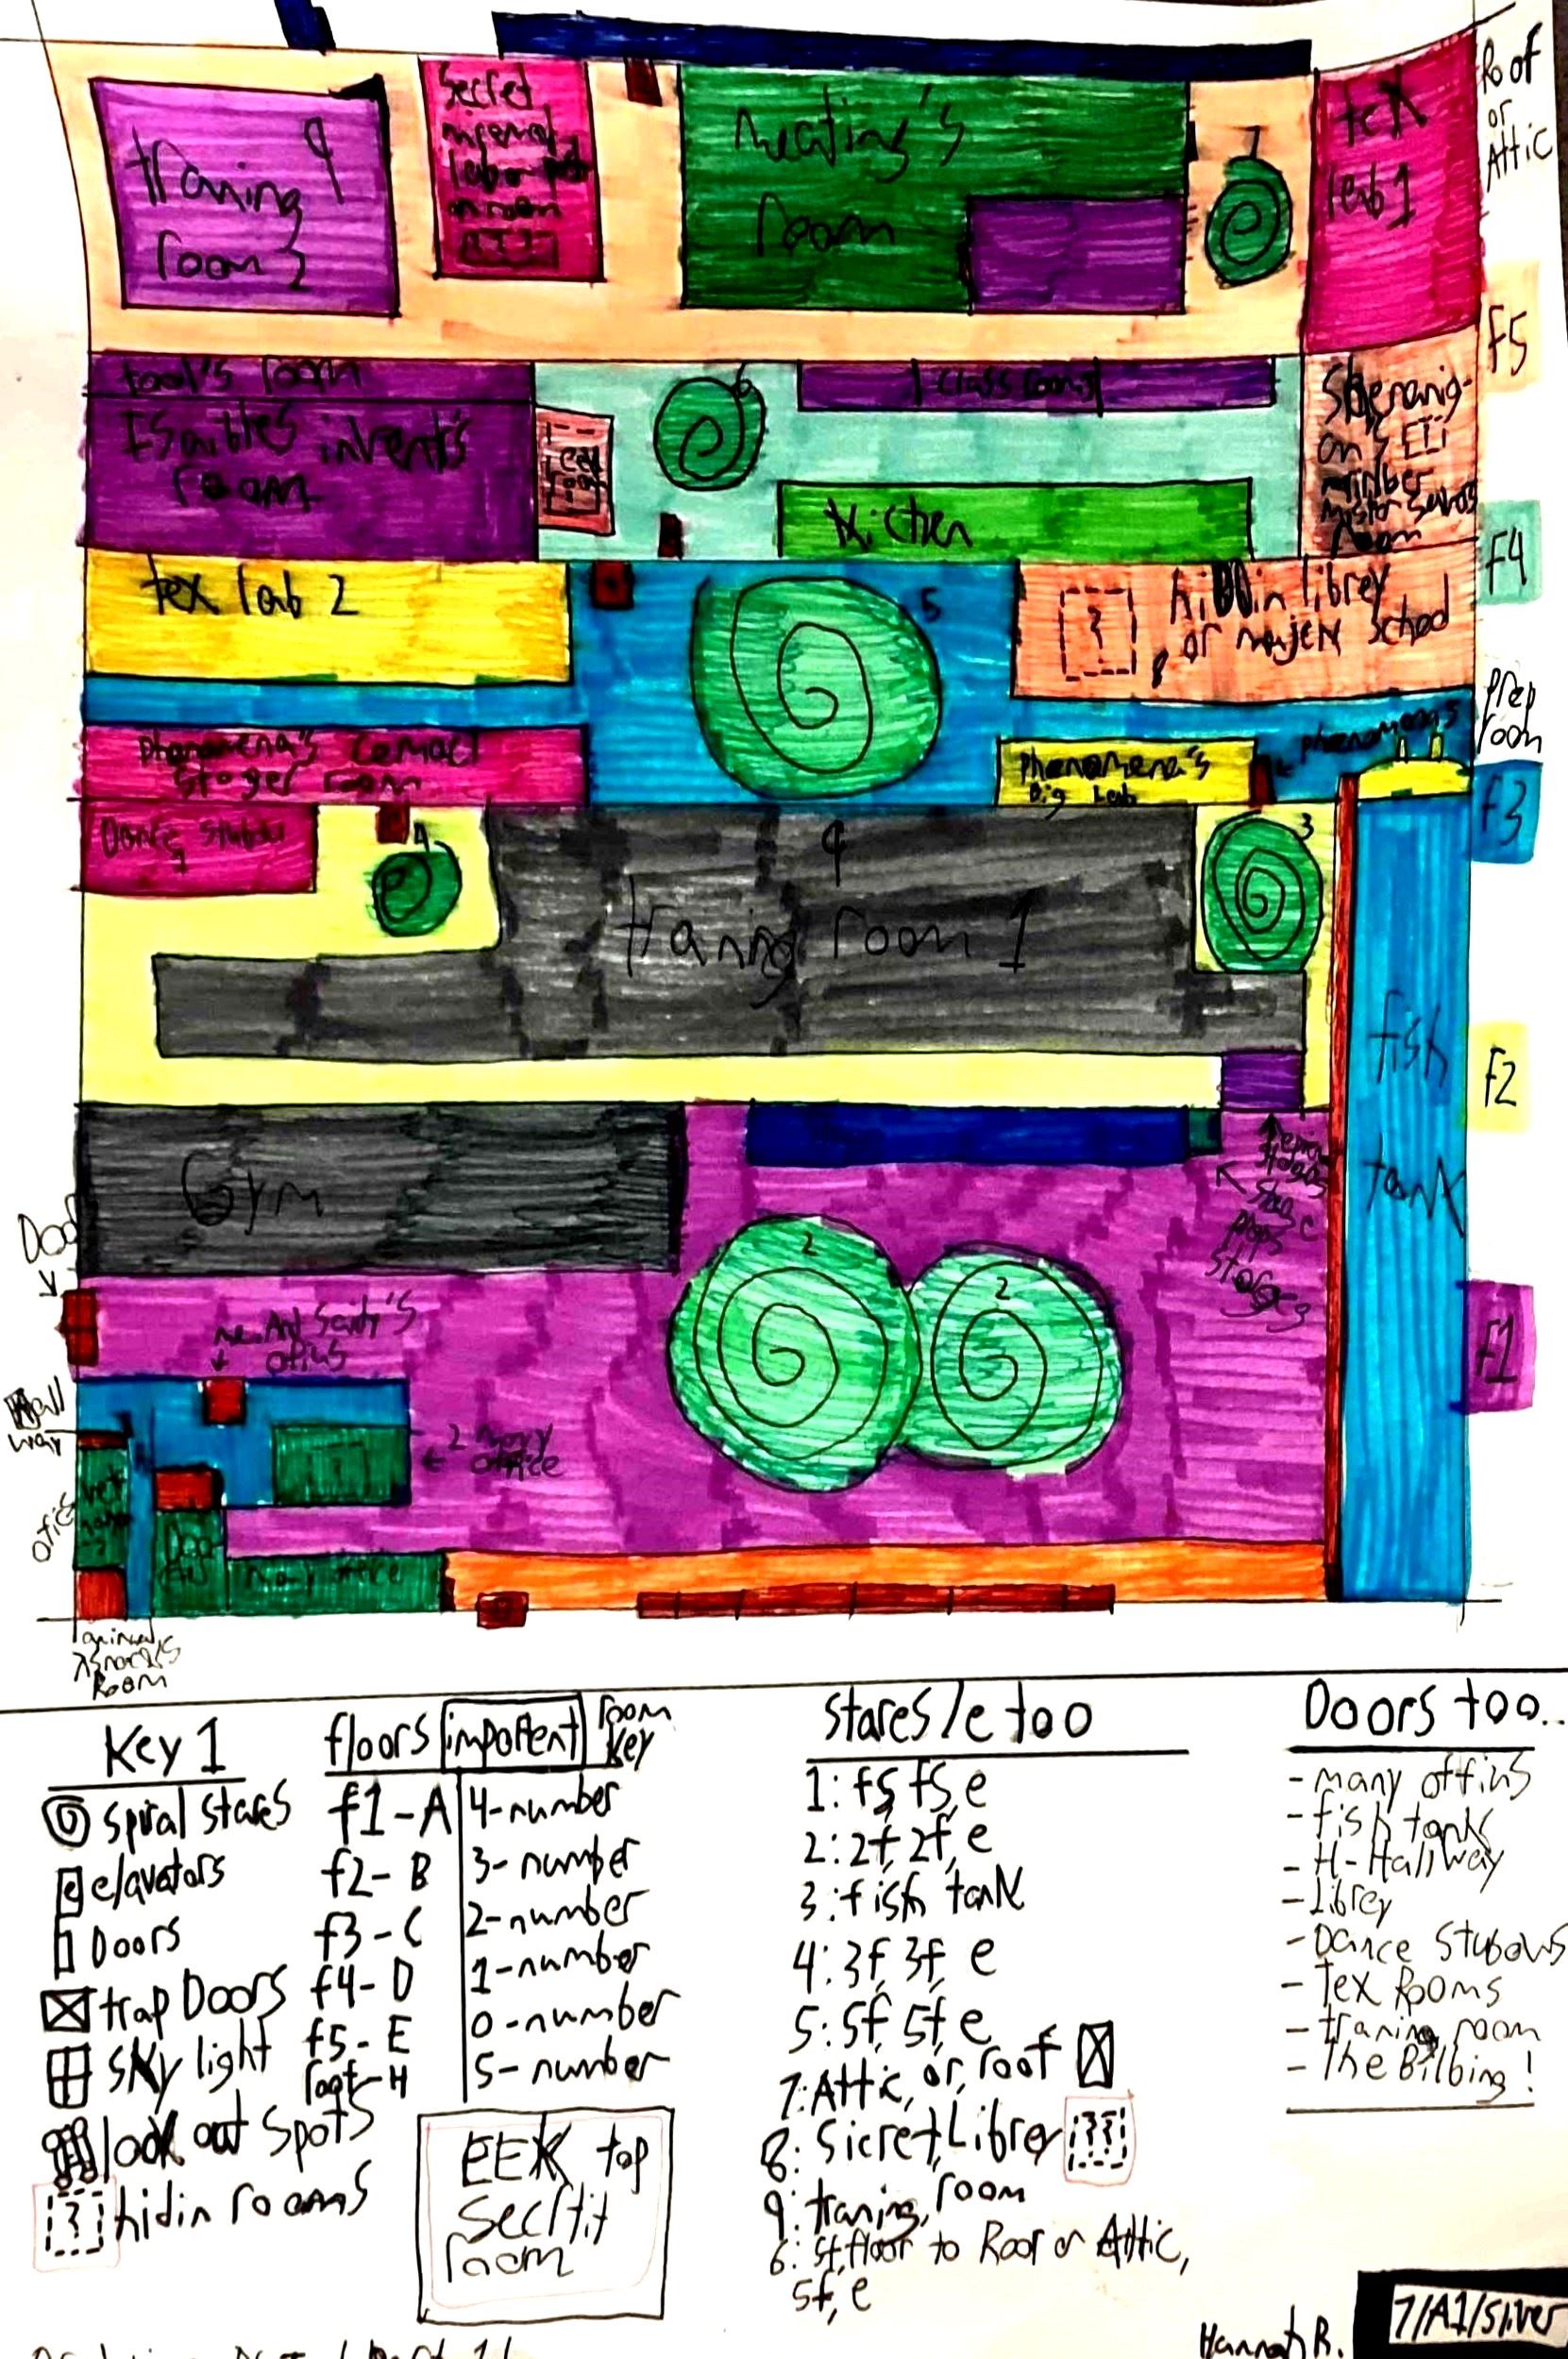 Roof
or
Attic
Secret
traning 9
room 2
meating's
room
7
tex
lab 1
f5
tool's room
6
classrooms
Isaibles invent's
room
kichen
room
f4
tex lab 2
5
hiddin librey
8 or majek school
prep
room
phenomena's comact
stoger room
phenomena's
Big lab
phenomena's
f3
Dance studio
4
9
3
traning room 1
fish
tank
f2
Gym
stage
props
Door
2
2
f1
offius
Hall
way
2 many
office
ofics
many office
animal
snacks
Room
Key 1
spiral stares
elavators
Doors
trap Doors
sky light
look out spots
hidin rooms
floors impoftent room
key
f1-A 4-number
f2-B 3-number
f3-C 2-number
f4-D 1-number
f5-E 0-number
root-H 5-number
EEK top
secrtit
room
stares/e too
1: fs, fs, e
2: 2f, 2f, e
3: fish tank
4: 3f, 3f, e
5: 5f, 5f, e
7: Attic, or, roof
8: Sicret, Librey
9: traning, room
6: 5f, floor to Roof or Attic,
5f, e
Doors too..
- many offius
- fish tank
- H-Hallway
- Librey
- Dance Stubows
- Tex Rooms
- traning room
- The Bilbing!
Hannah R.
7/A1/Silver